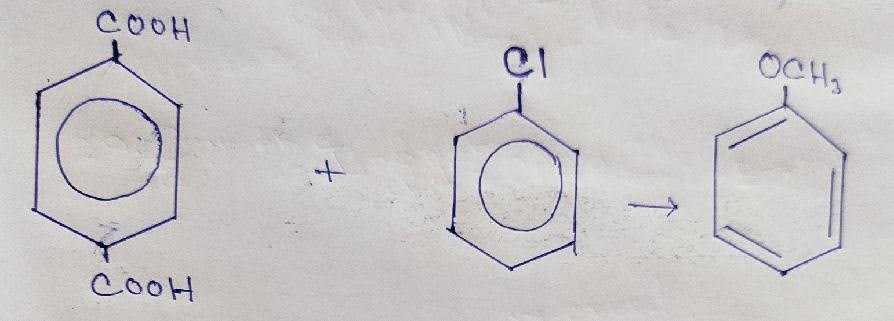 COOH
COOH
+
Cl
→
OCH₃